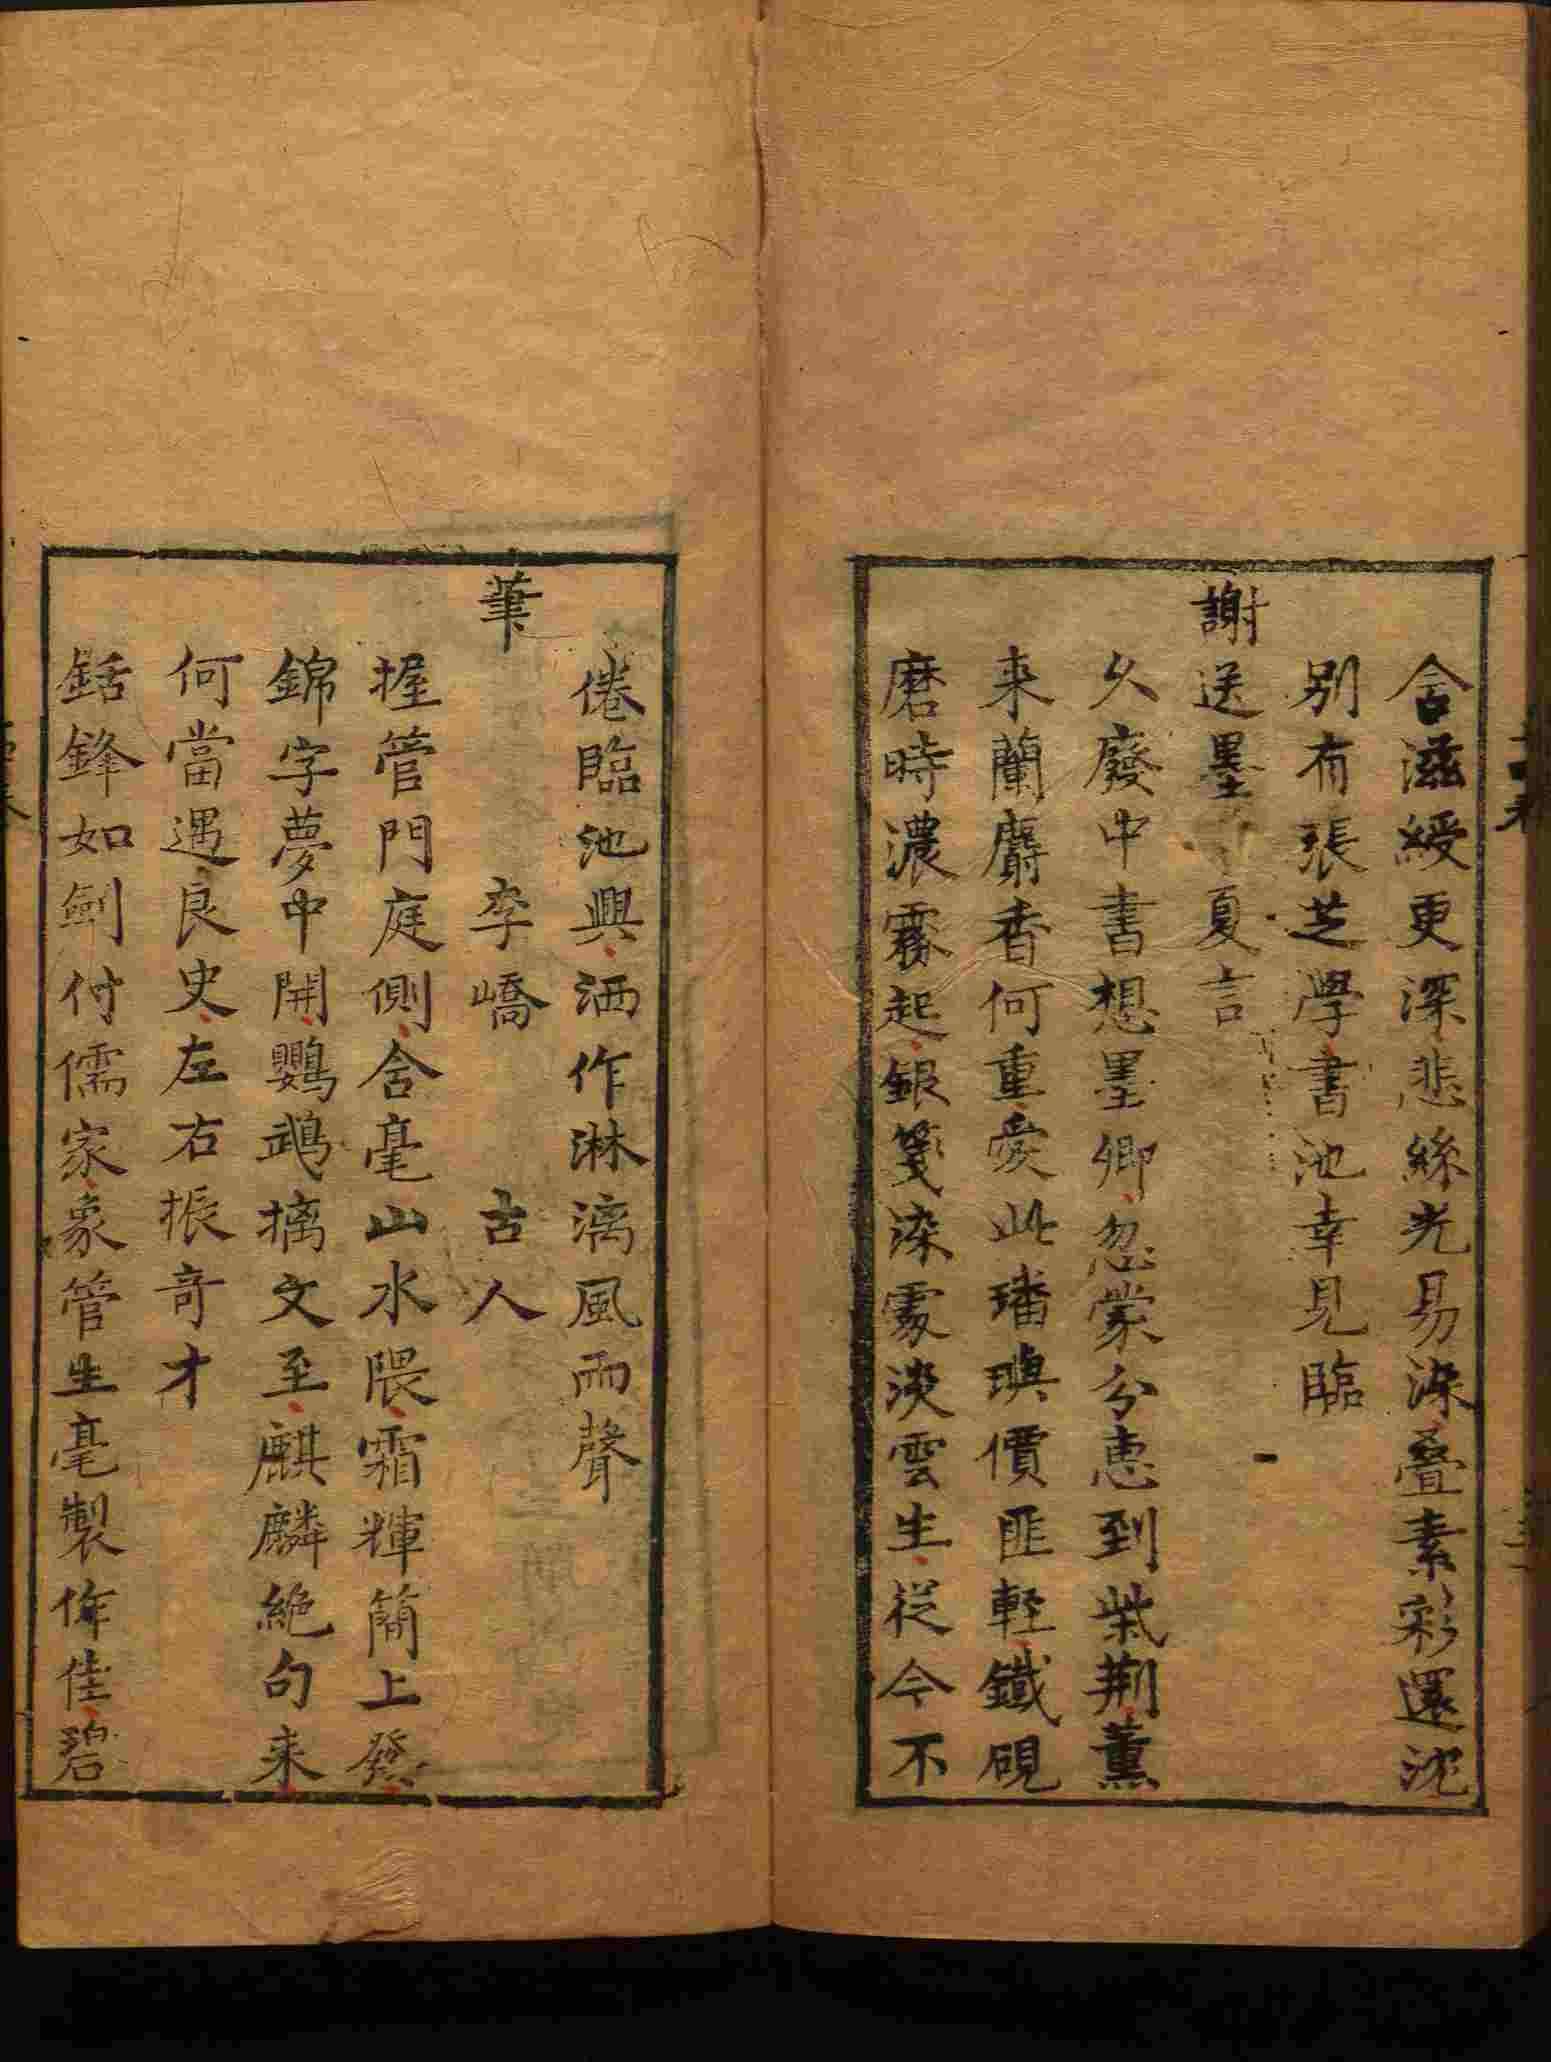 含滋綬更深悲絲光易染叠素彩還沈
別有張芝學書池幸見臨
謝送墨 夏言
久廢中書想墨卿忽蒙分惠到柴荆薫
来蘭麝香何重愛此璠璵價匪輕鐵硯
磨時濃霧起銀箋染處淡雲生從今不
倦臨池興洒作淋漓風雨聲
筆 李嶠 古人
握管門庭側含毫山水隈霜輝簡上發
錦字夢中開鸚鵡摛文至麒麟絶句来
何當遇良史左右振奇才
銛鋒如劍付儒家象管生毫製作佳碧